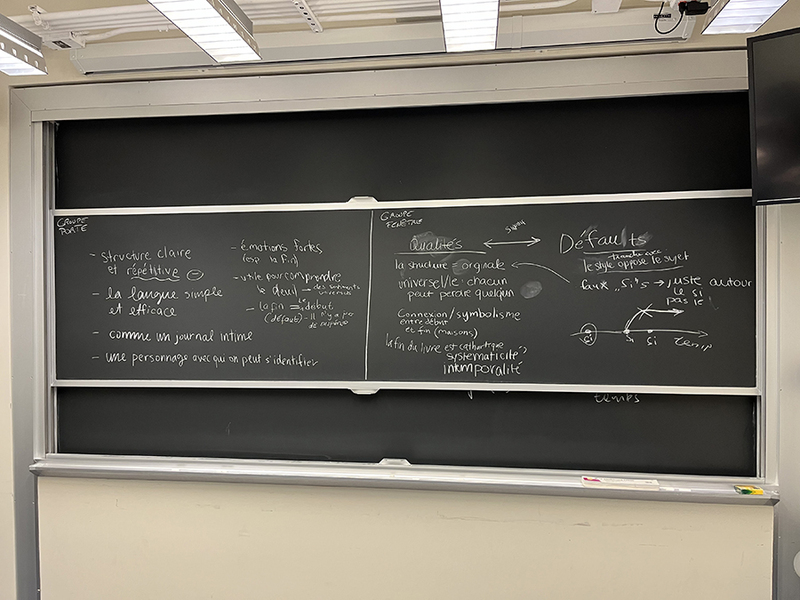 GROUPE
PORTE
- structure claire
et répétitive
- la langue simple
et efficace
- comme un journal intime
- une personnage avec qui on peut s'identifier
- émotions fortes
(esp la fin)
- utile pour comprendre
le deuil → des sentiments
universels
- la fin = le début
(défaut) - Il n'y a pas
de
GROUPE
FENÊTRE
Qualités
la structure originale
universel/le: chacun
peut perdre quelqu'un
Connexion/symbolisme
entre début
et fin (maisons)
la fin du livre est cathartique
systématicité,
intemporalité
Défaults
tranche avec
le style oppose le sujet
faux "si"s → juste autour
le si
pas le
si
si
si
temp
temps